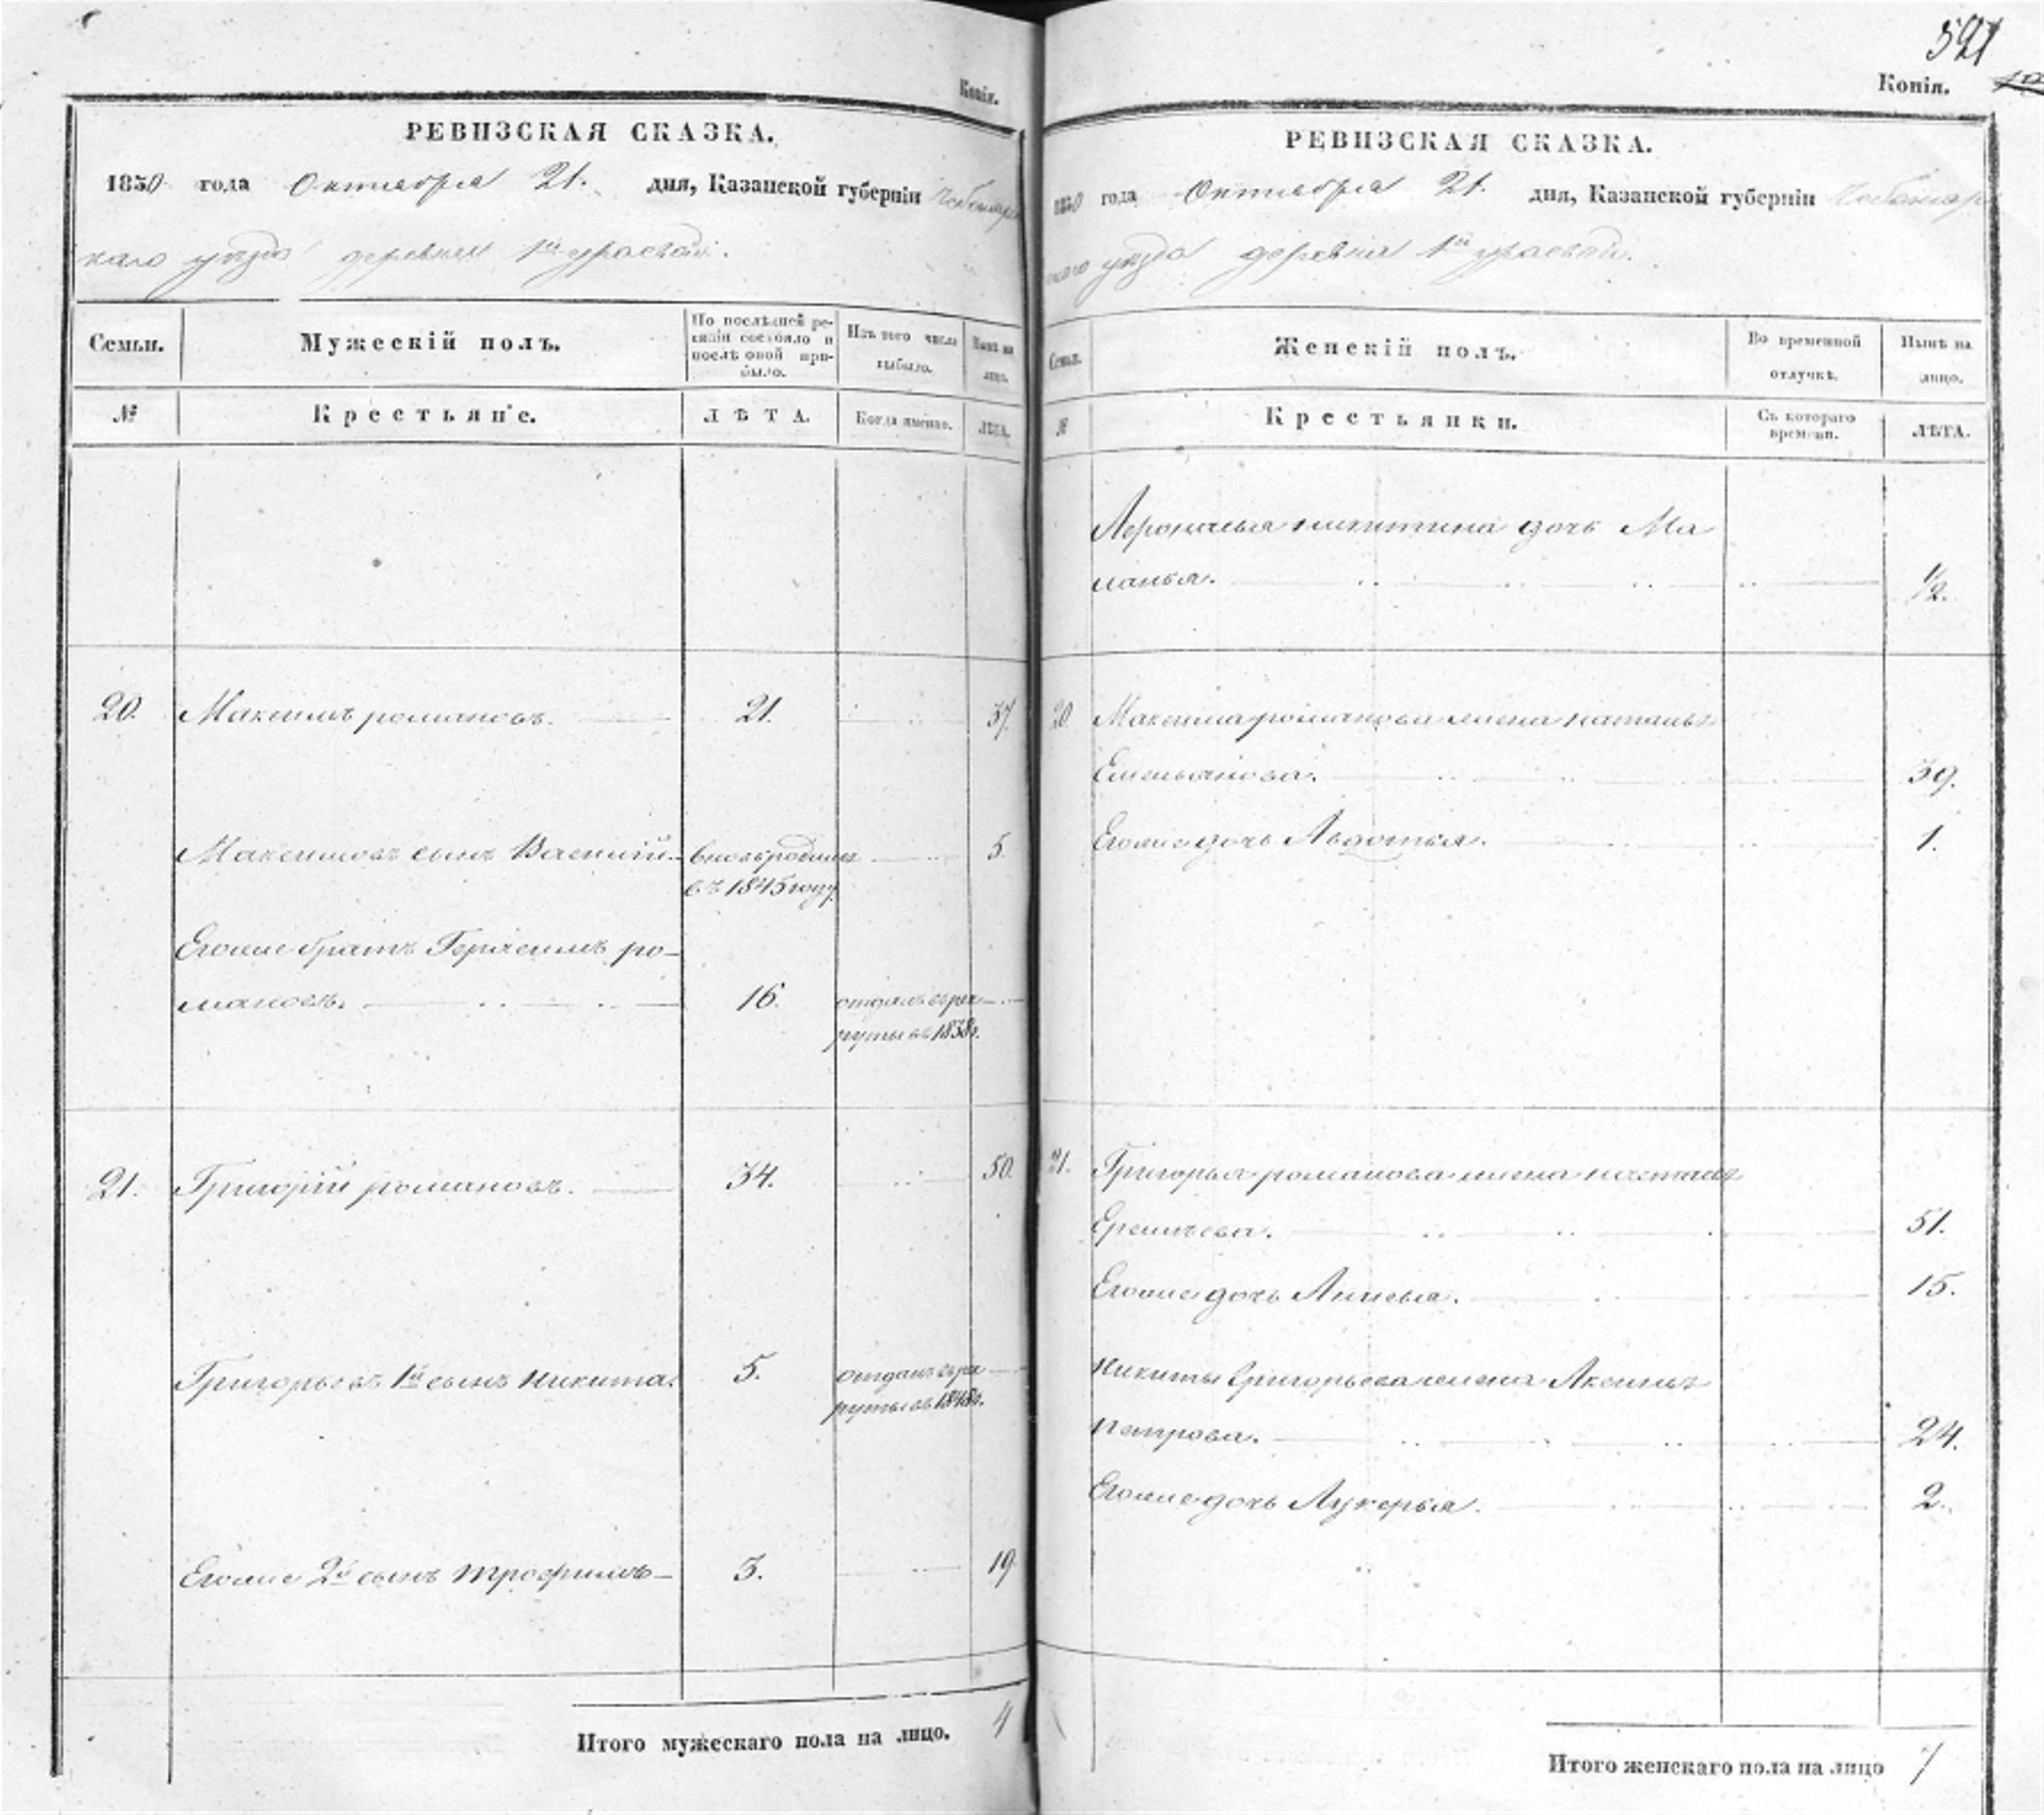 Копія.
РЕВИЗСКАЯ СКАЗКА.
1850 года Октября 21. дня, Казанской губерніи Чебоксар
скаго уѣзда деревни 1й
Семьи.
Мужескій полъ.
По послѣдней ре-
визіи состояло и
послѣ оной при-
было.
Изъ того числа
выбыло.
Нынѣ на
лицо.
№
Крестьяне.
ЛѢТА.
Когда именно.
ЛѢТА.
20. Максимъ романовъ. 21. 37.
Максимовъ сынъ Василій. вновь родился 5.
въ 1845 году.
Егоже братъ Герасимъ ро-
мановъ. 16. отданъ въ рек
руты въ 1838г.
21. Григорій романовъ. 34. 50.
Григорьевъ 1й сынъ никита. 5. отданъ въ рек
руты въ 1848г.
Егоже 2й сынъ трофимъ 3. 19
Итого мужескаго пола на лицо. 4
521
Копія.
РЕВИЗСКАЯ СКАЗКА.
1850 года Октября 21. дня, Казанской губерніи Чебоксар
скаго уѣзда деревни 1й
Семьи.
Женскій полъ.
Во временной
отлучкѣ.
Нынѣ на
лицо.
№
Крестьянки.
Съ котораго
времени.
ЛѢТА.
никитина дочь Ма
ланья. 1/2.
20 Максима романова жена наталья
Емельянова. 39.
Егоже дочь Авдотья. 1.
21. Григорья романова жена настасья
51.
Егоже дочь 15.
никиты григорьева жена Аксинья
петрова. 24.
Егоже дочь Лукерья. 2.
Итого женскаго пола на лицо 7